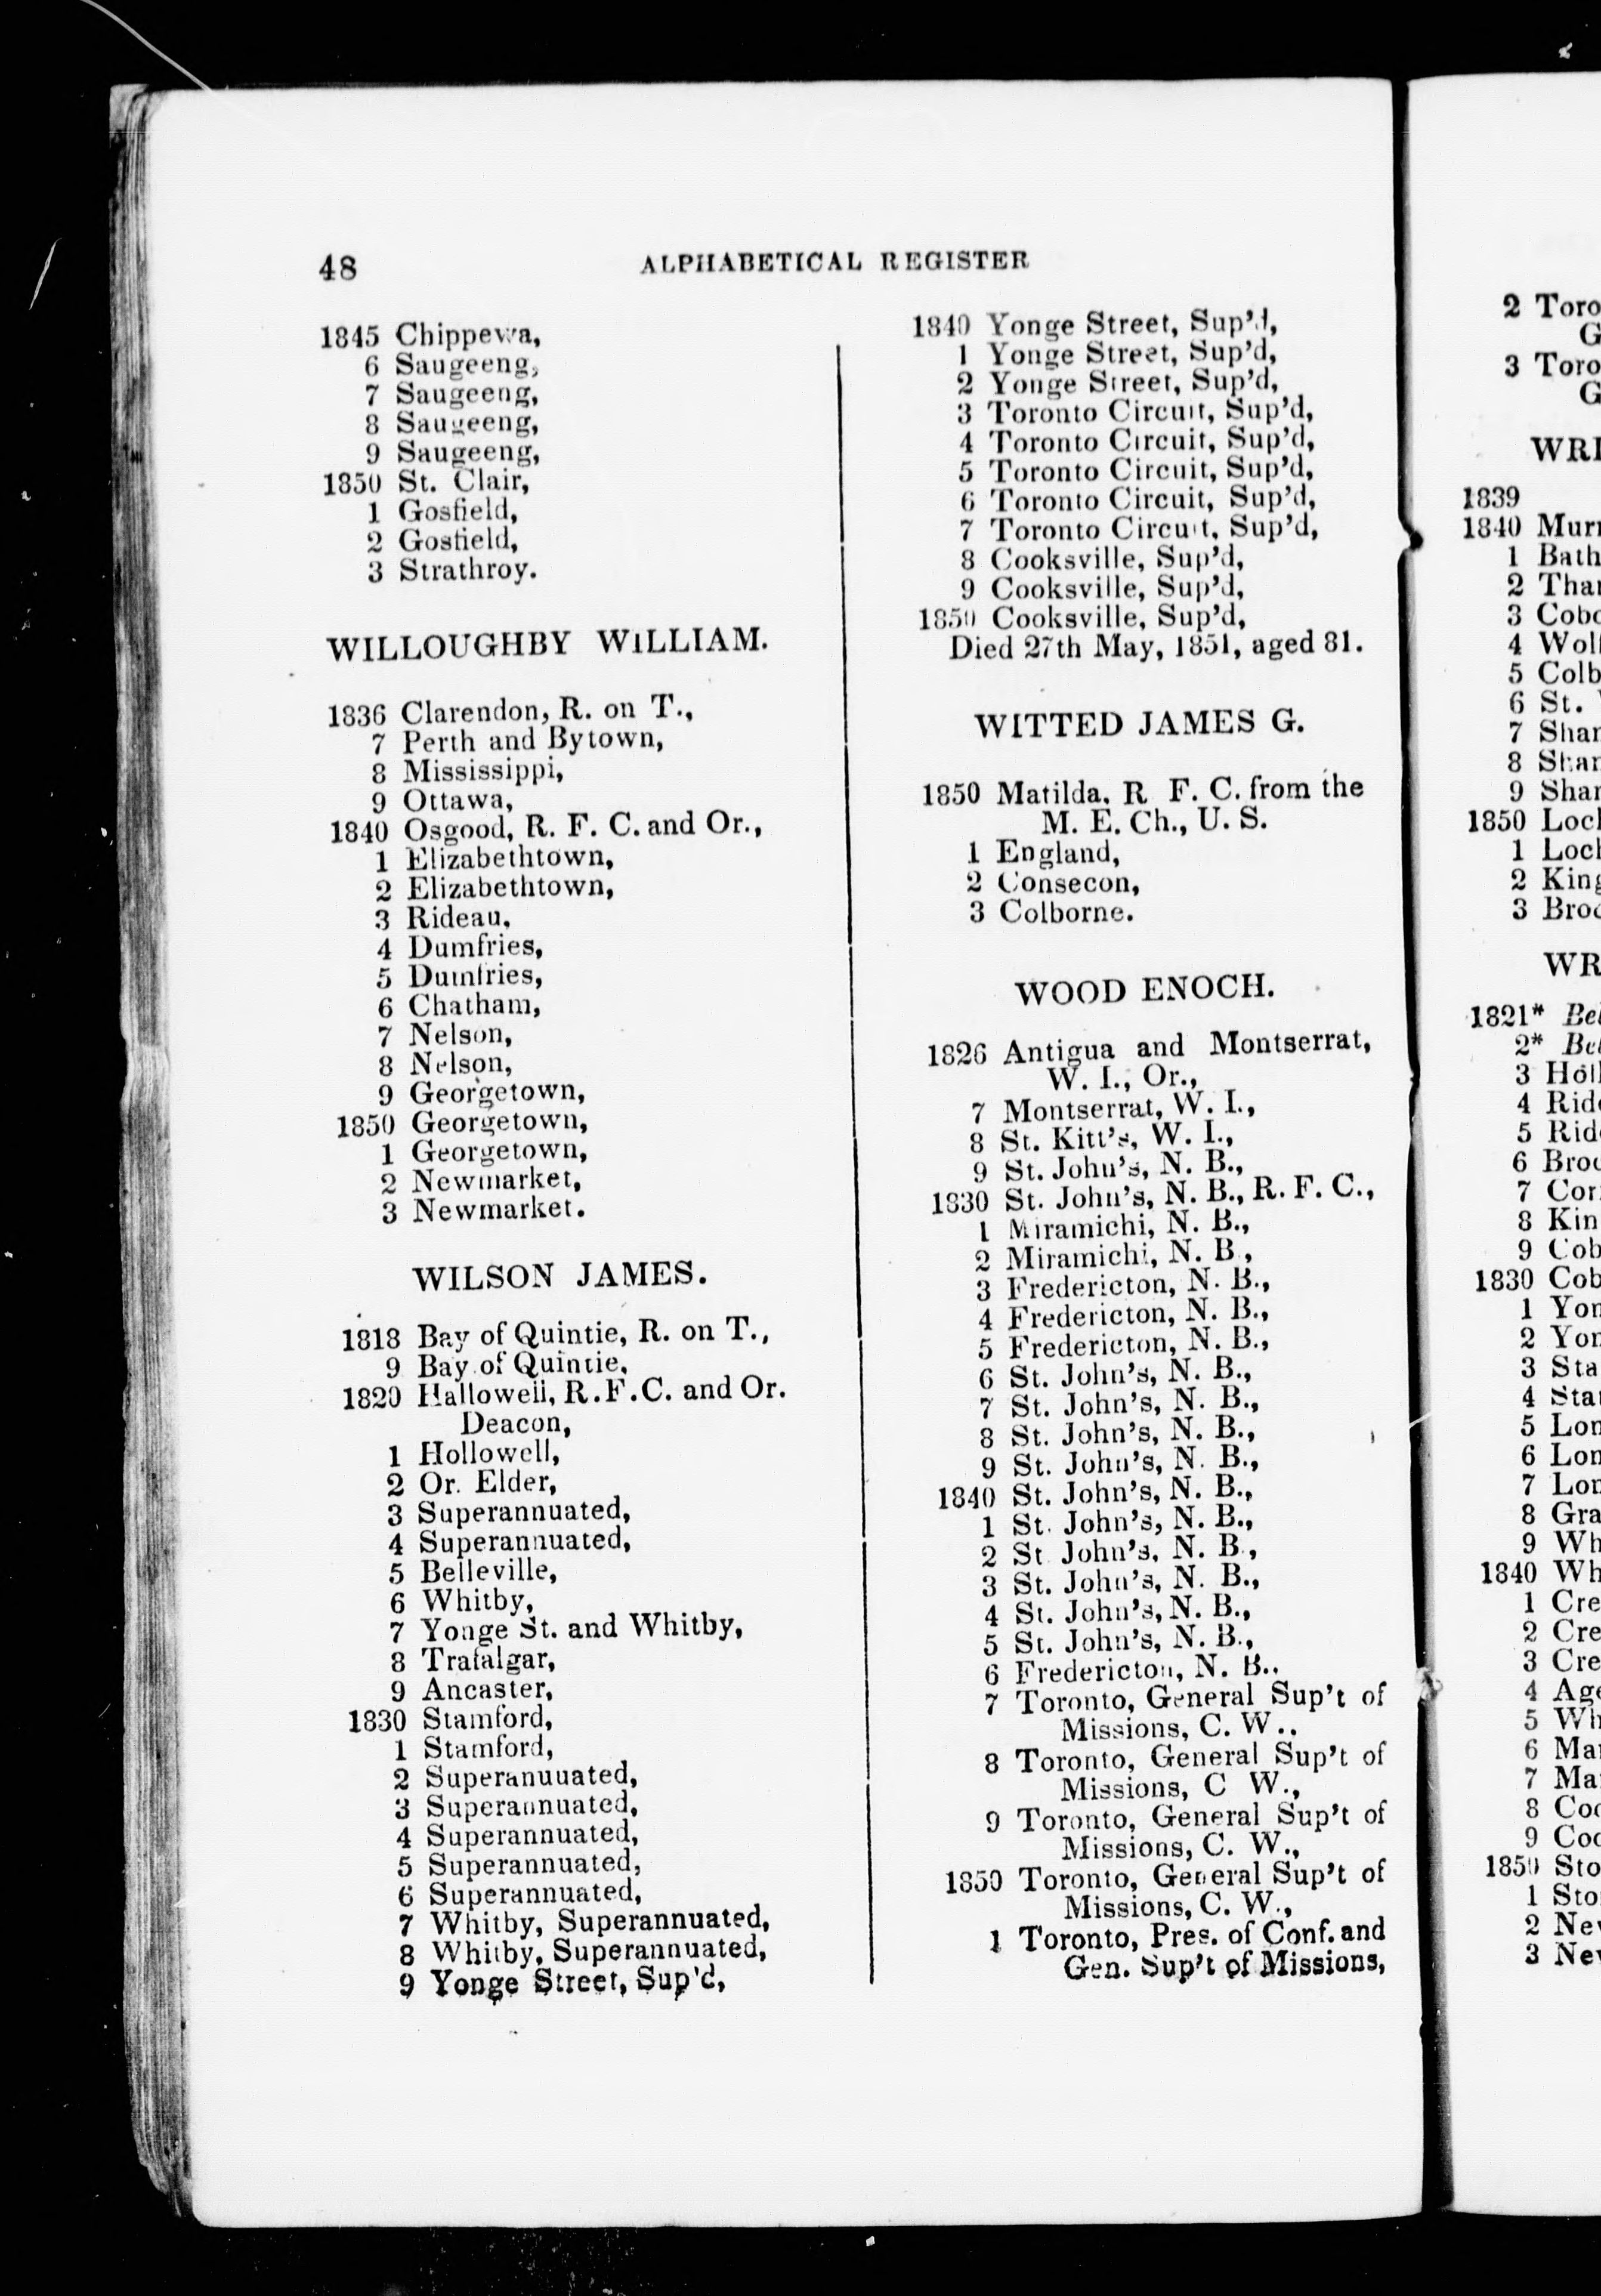 48 ALPHABETICAL REGISTER
1845 Chippewa,
6 Saugeeng,
7 Saugeeng,
8 Saugeeng,
9 Saugeeng,
1850 St. Clair,
1 Gosfield,
2 Gosfield,
3 Strathroy.
WILLOUGHBY WILLIAM.
1836 Clarendon, R. on T.,
7 Perth and Bytown,
8 Mississippi,
9 Ottawa,
1840 Osgood, R. F. C. and Or.,
1 Elizabethtown,
2 Elizabethtown,
3 Rideau,
4 Dumfries,
5 Dumfries,
6 Chatham,
7 Nelson,
8 Nelson,
9 Georgetown,
1850 Georgetown,
1 Georgetown,
2 Newmarket,
3 Newmarket.
WILSON JAMES.
1818 Bay of Quintie, R. on T.,
9 Bay of Quintie,
1820 Hallowell, R.F.C. and Or.
Deacon,
1 Hollowell,
2 Or. Elder,
3 Superannuated,
4 Superannuated,
5 Belleville,
6 Whitby,
7 Yonge St. and Whitby,
8 Trafalgar,
9 Ancaster,
1830 Stamford,
1 Stamford,
2 Superanuuated,
3 Superannuated,
4 Superannuated,
5 Superannuated,
6 Superannuated,
7 Whitby, Superannuated,
8 Whitby, Superannuated,
9 Yonge Street, Sup'd,
1840 Yonge Street, Sup'd,
1 Yonge Street, Sup'd,
2 Yonge Street, Sup'd,
3 Toronto Circuit, Sup'd,
4 Toronto Circuit, Sup'd,
5 Toronto Circuit, Sup'd,
6 Toronto Circuit, Sup'd,
7 Toronto Circuit, Sup'd,
8 Cooksville, Sup'd,
9 Cooksville, Sup'd,
1850 Cooksville, Sup'd,
Died 27th May, 1851, aged 81.
WITTED JAMES G.
1850 Matilda. R F. C. from the
M. E. Ch., U. S.
1 England,
2 Consecon,
3 Colborne.
WOOD ENOCH.
1826 Antigua and Montserrat,
W. I., Or.,
7 Montserrat, W. I.,
8 St. Kitt's, W. I.,
9 St. John's, N. B.,
1830 St. John's, N. B., R. F. C.,
1 Miramichi, N. B.,
2 Miramichi, N. B.,
3 Fredericton, N. B.,
4 Fredericton, N. B.,
5 Fredericton, N. B.,
6 St. John's, N. B.,
7 St. John's, N. B.,
8 St. John's, N. B.,
9 St. John's, N. B.,
1840 St. John's, N. B.,
1 St. John's, N. B.,
2 St John's, N. B.,
3 St. John's, N. B.,
4 St. John's, N. B.,
5 St. John's, N. B.,
6 Fredericton, N. B..
7 Toronto, General Sup't of
Missions, C. W..
8 Toronto, General Sup't of
Missions, C W.,
9 Toronto, General Sup't of
Missions, C. W.,
1850 Toronto, General Sup't of
Missions, C. W.,
1 Toronto, Pres. of Conf. and
Gen. Sup't of Missions,
2 Toro
G
3 Toro
G
WRI
1839
1840 Murr
1 Bath
2 Tha
3 Cobo
4 Wol
5 Colb
6 St.
7 Shar
8 Shar
9 Shar
1850 Loc
1 Loc
2 King
3 Bro
WR
1821* Bel
2* Bel
3 Hol
4 Rid
5 Rid
6 Bro
7 Cor
8 Kin
9 Cob
1830 Cob
1 Yon
2 Yon
3 Sta
4 Sta
5 Lon
6 Lon
7 Lon
8 Gra
9 Wh
1840 Wh
1 Cre
2 Cre
3 Cre
4 Age
5 Wh
6 Ma
7 Ma
8 Coo
9 Coo
1850 Sto
1 Sto
2 Ne
3 Ne